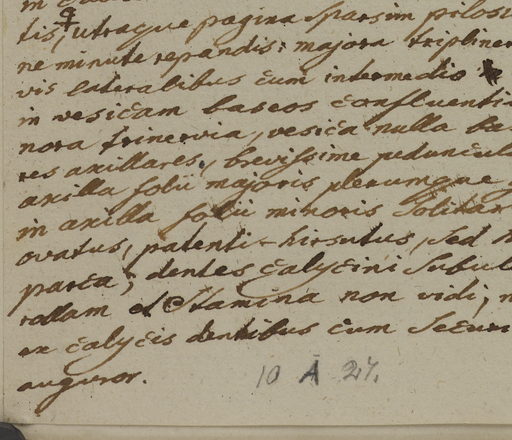 tis, utraque pagina sparsim pilosi
ne minute repandis: majora tripliner
vis lateralibus cum intermedio
in vesicam baseos confluenti
nora trinervia, vesica nulla ba
res axillares, brevissime peduncula
axilla folii majoris plerumque
in axilla folii minoris solitar
ovatus, patenti-hirsutus, sed
parca; dentes calycini subul
rollam et stamina non vidi,
ex calycis dentibus cum secun
auguror.
10 A 27.